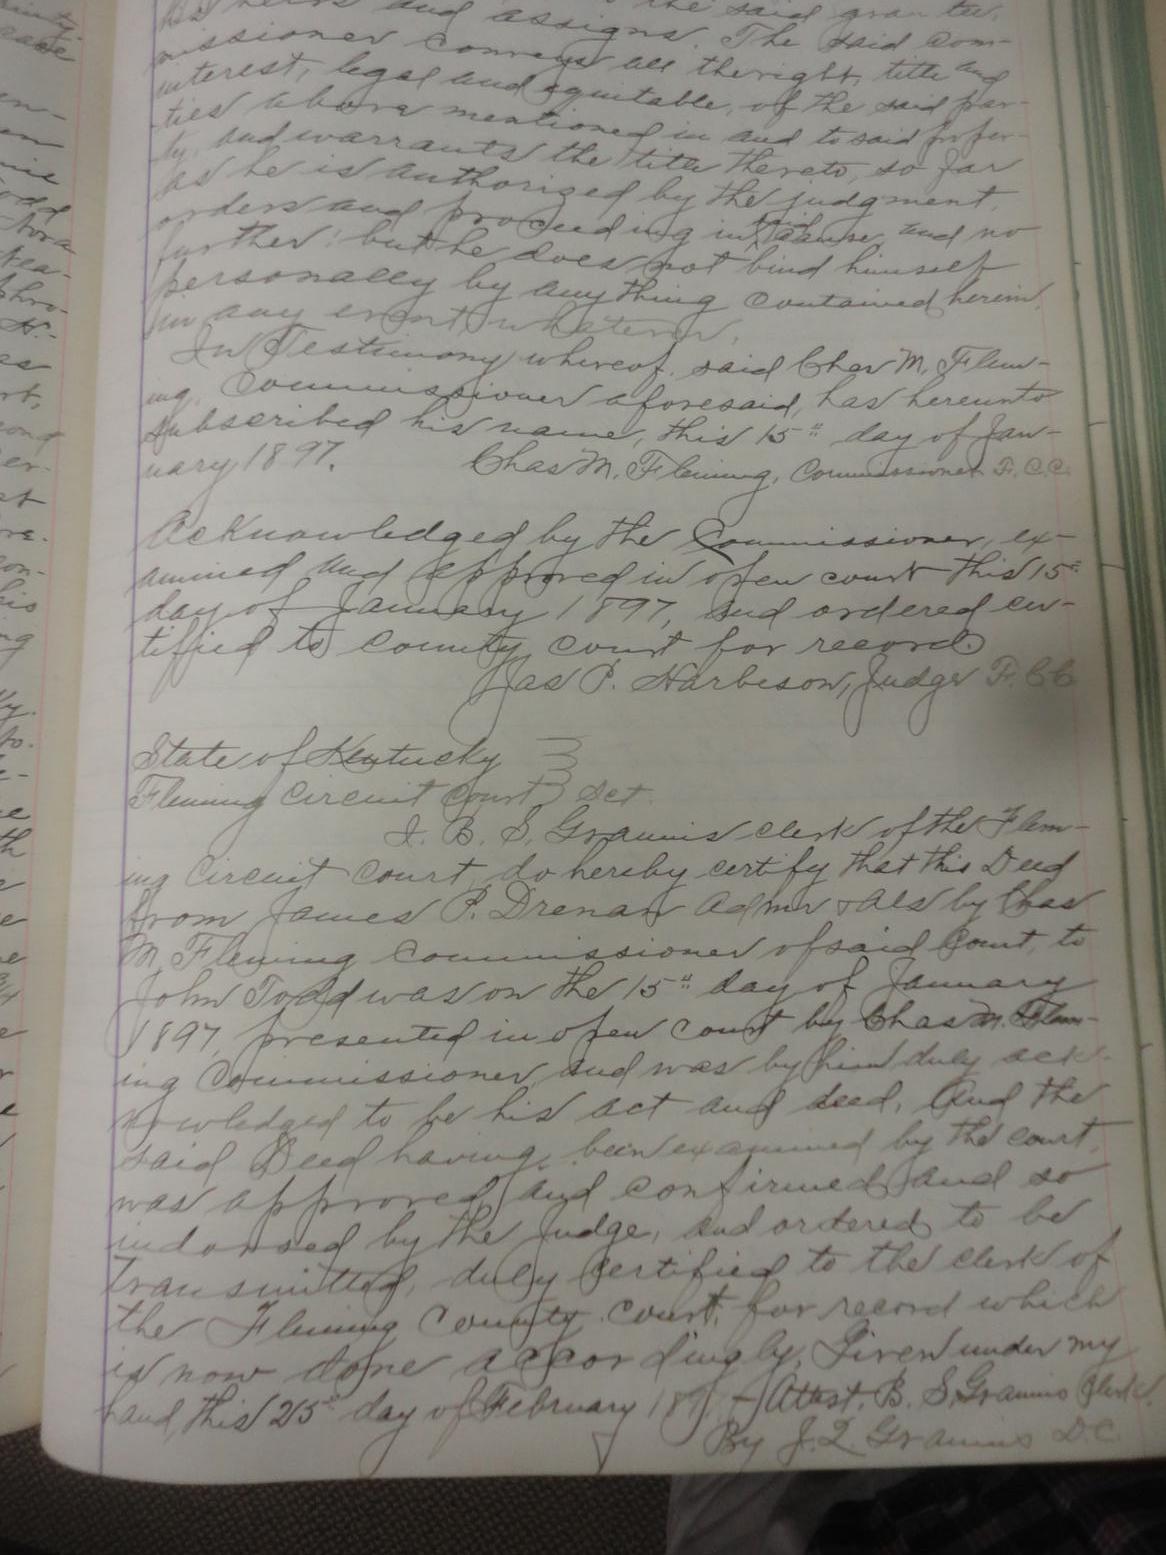 his heirs and assigns. The said com-
missioner conveys all the right, title and
interest, legal and equitable, of the said par-
ties above mentioned in and to said proper-
ty, and warrants the title thereto, so far
as he is authorized by the judgment,
orders and proceeding in said cause, and no
further: but he does not bind himself
personally by anything contained herein,
in any event whatever.
In Testimony whereof, said Chas M. Flem-
ing, Commissioner aforesaid, has hereunto
subscribed his name, this 15" day of Jan-
uary 1897. Chas M. Fleming, Commissioner F.C.C.
Acknowledged by the Commissioner, ex-
amined and approved in open court this 15"
day of January 1897, and ordered cer-
tified to county court for record
Jas P. Harbeson, Judge F.C.C
State of Kentucky
Fleming Circuit Court } Sct.
I, B. S. Grannis clerk of the Flem-
ing Circuit Court, do hereby certify that this Deed
from James P. Drenan Admr & Als by Chas
M. Fleming commissioner of said Court, to
John Todd was on the 15" day of January
1897, presented in open court by Chas M. Flem-
ing Commissioner, and was by him duly ack-
nowledged to be his act and deed. And the
said Deed having been examined by the court,
was approved and confirmed and so
indorsed by the Judge, and ordered to be
transmitted, duly certified to the clerk of
the Fleming County Court, for record which
is now done accordingly. Given under my
hand, this 25" day of February 189 - Attest. B. S. Grannis Clerk.
By J. Q. Grannis D.C.